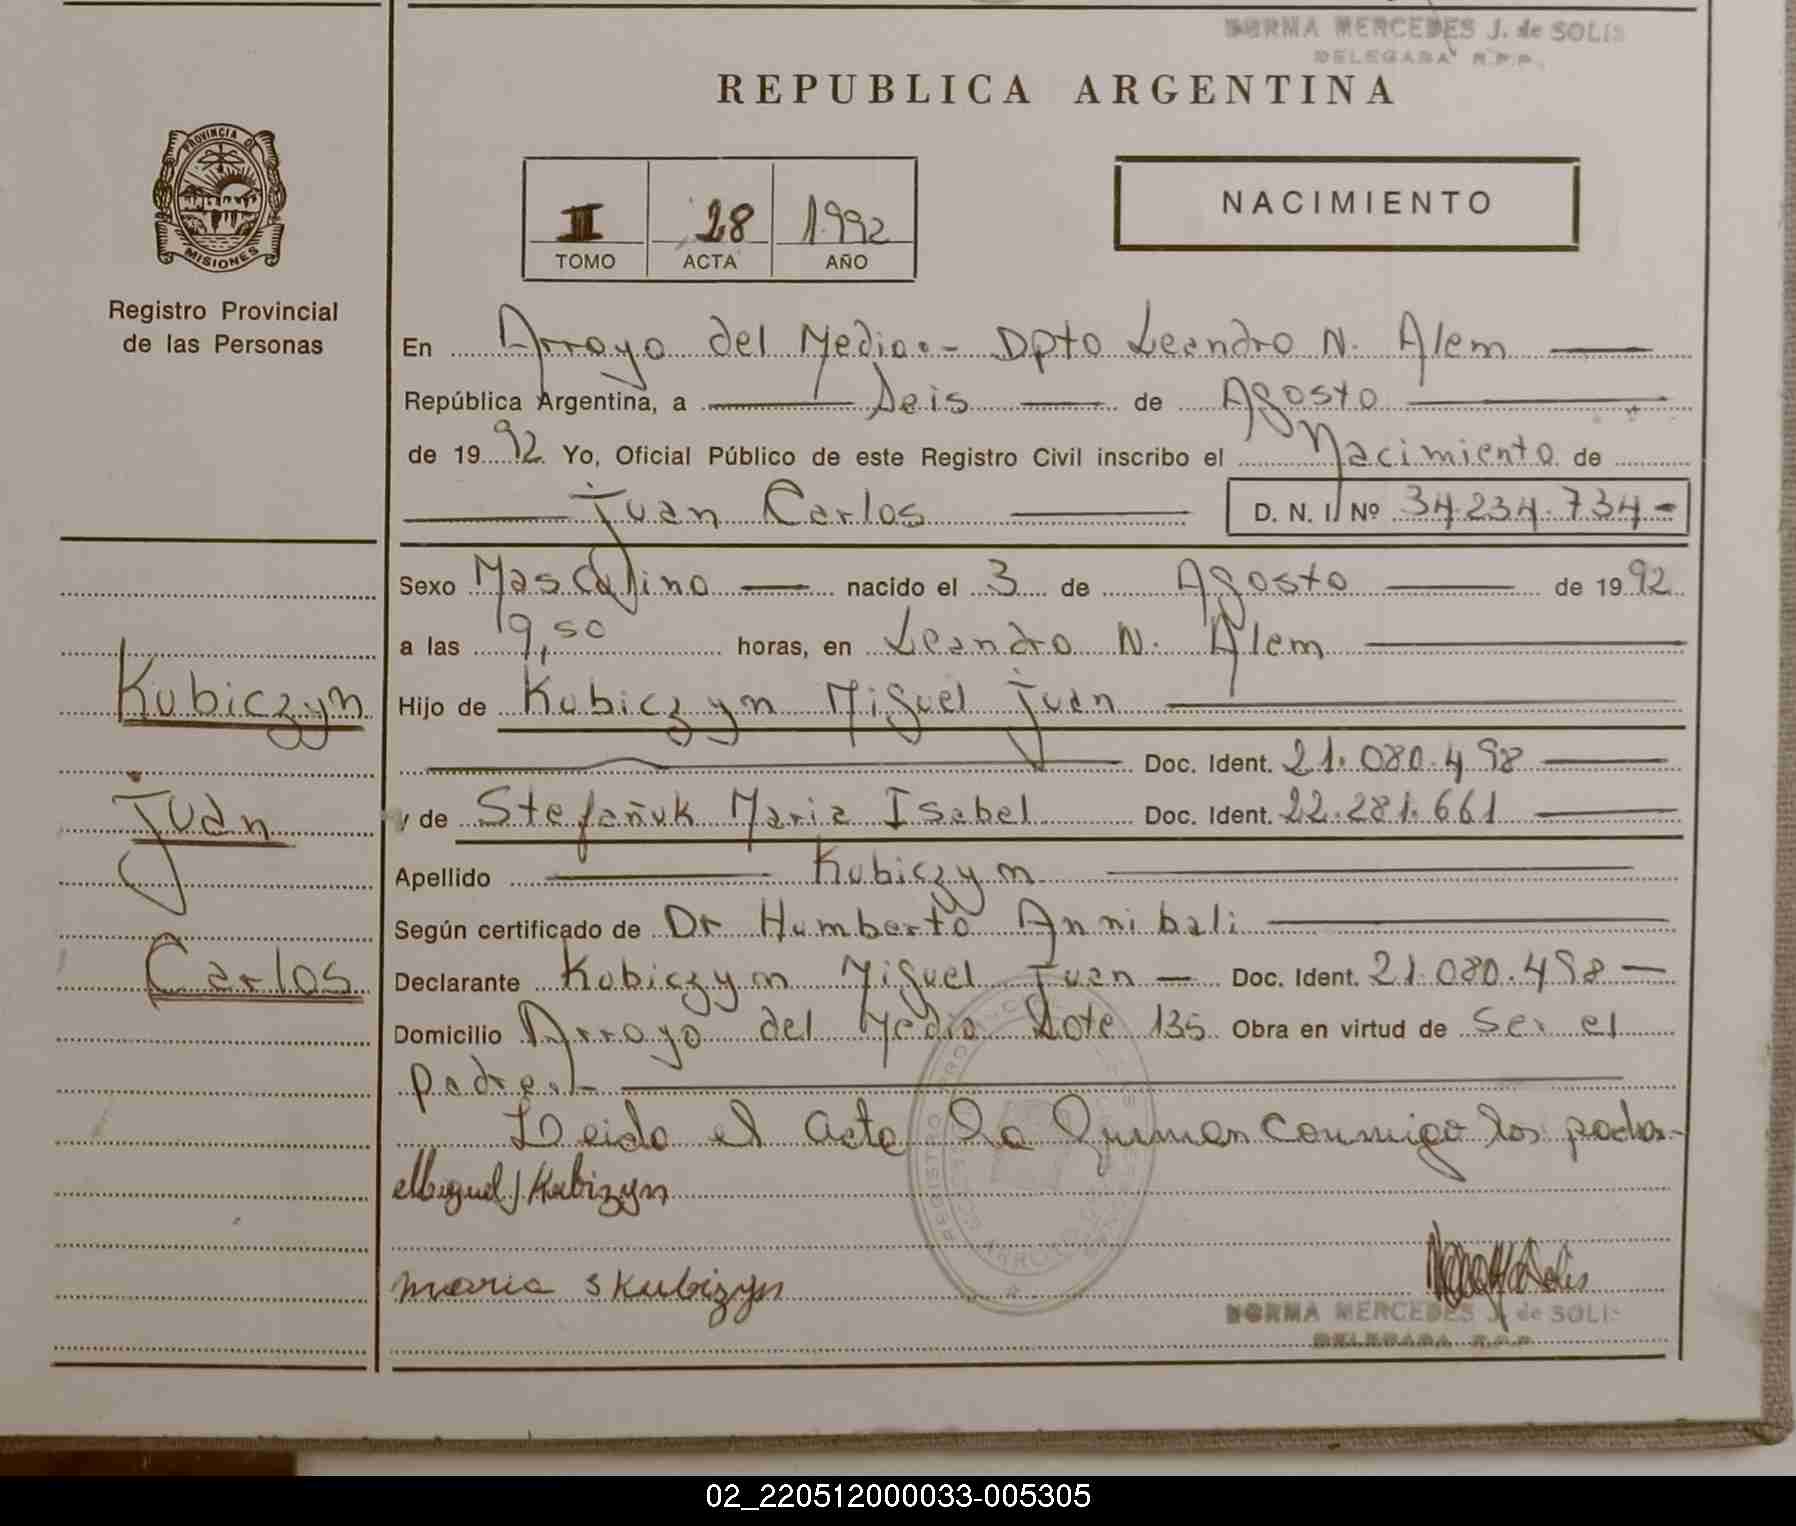 NORMA MERCEDES J. de SOLIS
DELEGADA R.P.P.
REPUBLICA ARGENTINA
PROVINCIA DE
MISIONES
Registro Provincial
de las Personas
II 28 1992
TOMO ACTA AÑO
NACIMIENTO
En Arroyo del Medio.- Dpto Leandro N. Alem
República Argentina, a Seis de Agosto
de 1992 Yo, Oficial Público de este Registro Civil inscribo el Nacimiento de
Juan Carlos D. N. I. Nº 34.234.734-
Sexo Masculino nacido el 3 de Agosto de 1992
a las 9,50 horas, en Leandro N. Alem
Hijo de Kubiczyn Miguel Juan
Doc. Ident. 21.080.498
y de Stefañuk Maria Isabel Doc. Ident. 22.281.661
Apellido Kubiczyn
Según certificado de Dr Humberto Annibali
Declarante Kubiczyn Miguel Juan Doc. Ident. 21.080.498
Domicilio Arroyo del Medio Lote 135 Obra en virtud de Ser el
padre.-
Leida el acta la firman conmigo los padres.-
Miguel J Kubizyn
Maria S Kubizyn
NORMA MERCEDES J. de SOLIS
DELEGADA R.P.P.
Kubiczyn
Juan
Carlos
02_220512000033-005305